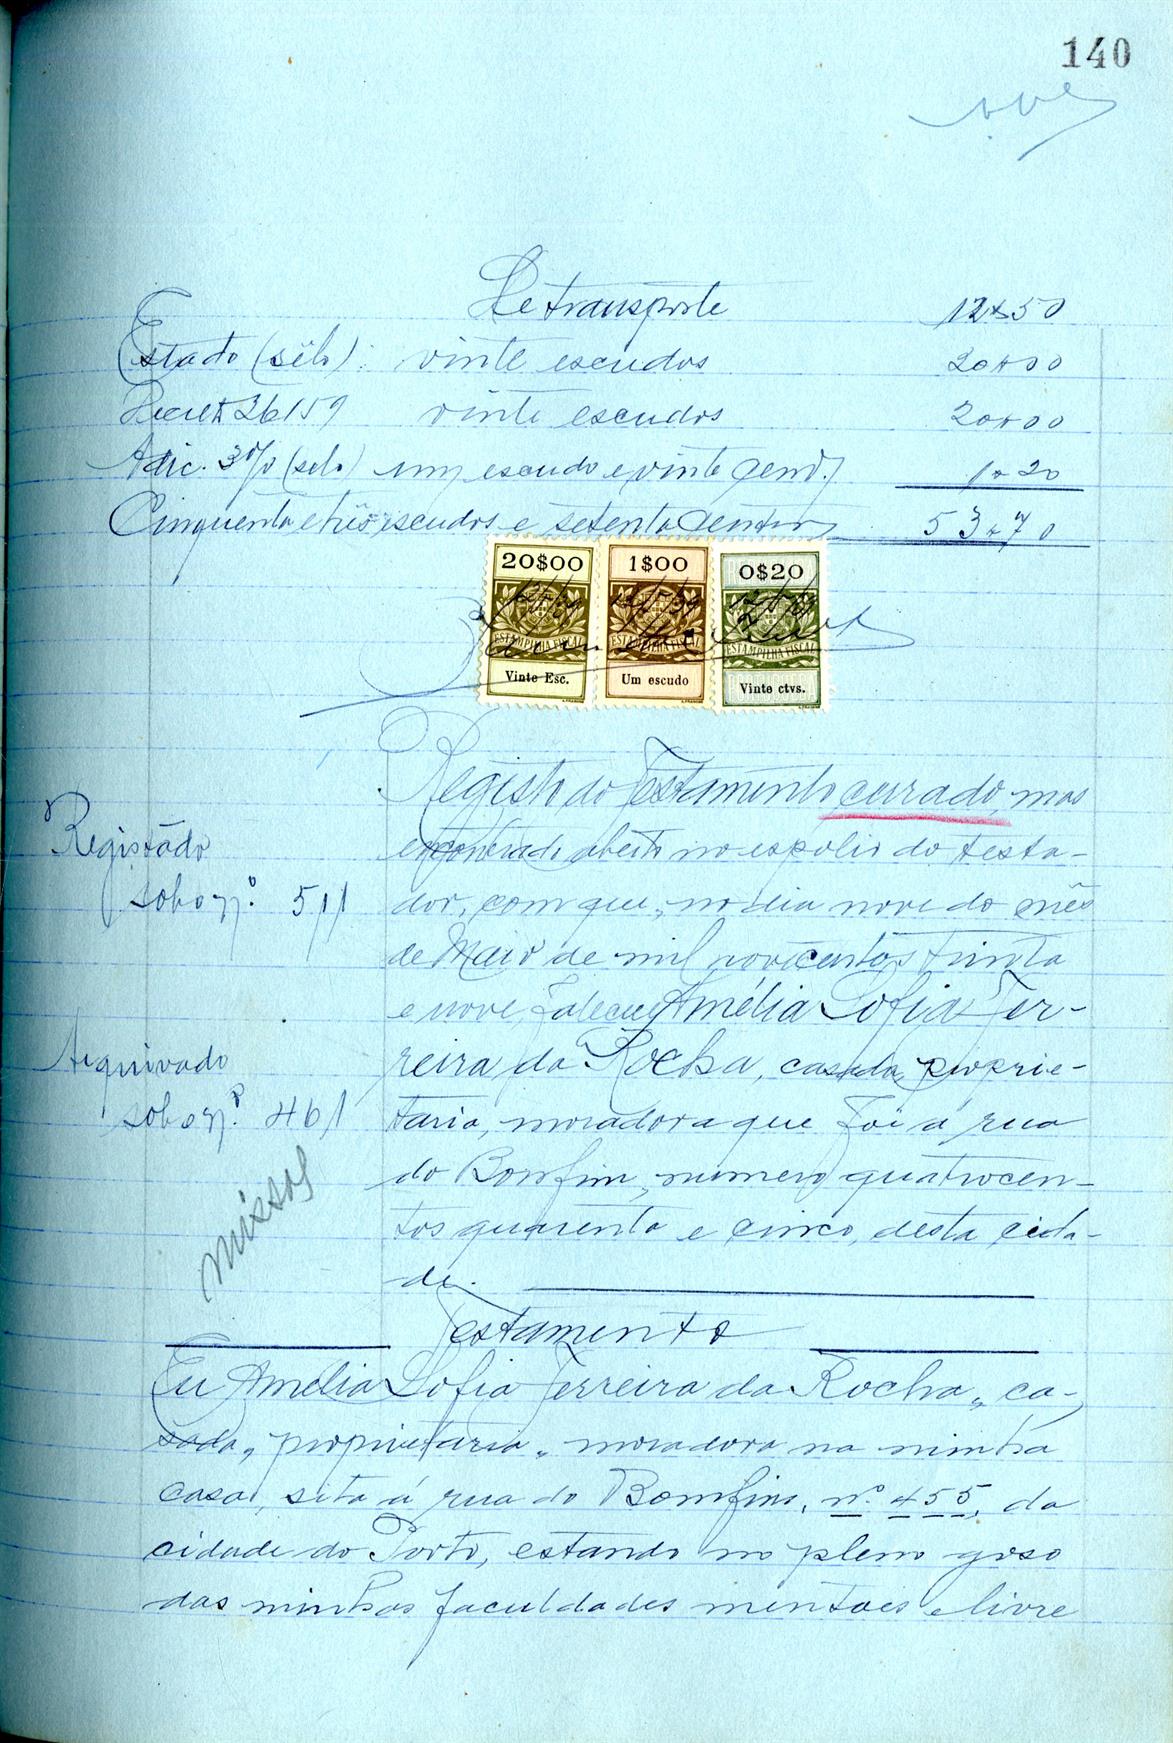 140
De transporte 12$50
Estado (sêlo): vinte escudos 20$00
Decreto 26159 vinte escudos 20$00
Adic. 3% (selo) um escudo e vinte cent. 1$20
Cinquenta e três escudos e setenta centavos 53$70
20$00 1$00 0$20
12/5/39 12/5/39 12/5/39
ESTAMPILHA FISCAL ESTAMPILHA FISCAL ESTAMPILHA FISCAL
Vinte Esc. Um escudo Vinte ctvs.
Registo do Testamento cerrado, mas
encontrado aberto no espolio do testa-
dor, com que, no dia nove do mês
de Maio de mil novecentos trinta
e nove, faleceu Amélia Sofia Fer-
reira da Rocha, casada, proprie-
taria, moradora que foi á rua
do Bomfim, numero quatrocen-
tos quarenta e cinco, desta cida-
de.
Registado
sob o n.º 511
Arquivado
sob o n.º 461
missas
Testamento
Eu Amélia Sofia Ferreira da Rocha, ca-
sada, proprietaria, moradora na minha
casa, sita á rua do Bomfim, nº 455, da
cidade do Porto, estando no pleno goso
das minhas faculdades mentaes e livre